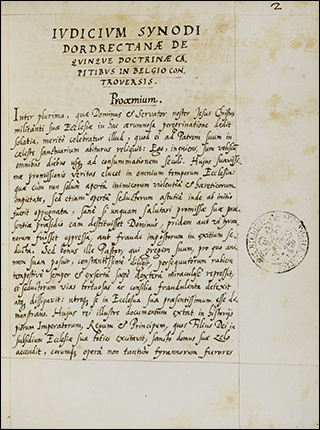 2
IVDICIVM SYNODI
DORDRECTANÆ DE
QVINQVE DOCTRINÆ CA
PITIBVS IN BELGIO CON
TROVERSIS.
Prooemium.
Inter plurima, quæ Dominus et Servator noster Jesus Christus
militanti suæ Ecclesiæ in hac ærumnosa peregrinatione dedit
solatia, merito celebratur illud, quod ei ad Patrem suum in
cæleste sanctuarium abiturus reliquit: Ego, inquiens, sum vobiscum
omnibus diebus usq; ad consummationem seculi. Hujus suavissi-
mæ promissionis veritas elucet in omnium temporum Ecclesia:
quæ cum non solum aperta inimicorum violentia et hæreticorum
impietate, sed etiam operta seductorum astutia inde ab initio
fuerit oppugnata, sane si unquam salutari promissæ suæ præ-
sentiæ præsidio eam destituisset Dominus, pridem aut vi tyran-
norum fuisset oppressa, aut fraude impostorum in exitium se-
ducta. Sed bonus ille Pastor, qui gregem suum, pro quo ani-
mam suam posuit, constantissime diligit, persecutorum rabiem
tempestive semper et exserta sæpe dextera miraculose repressit,
et seductorum vias tortuosas ac consilia fraudulenta detexit
atq; dissipavit: utroq; se in Ecclesia sua præsentissimum esse de-
monstrans. Hujus rei illustre documentum extat in historijs
piorum Imperatorum, Regum et Principum, quos Filius Dei in
subsidium Ecclesiæ suæ toties excitavit, sancto domus suæ zelo
accendit, eorumq; opera non tantum tyrannorum furores